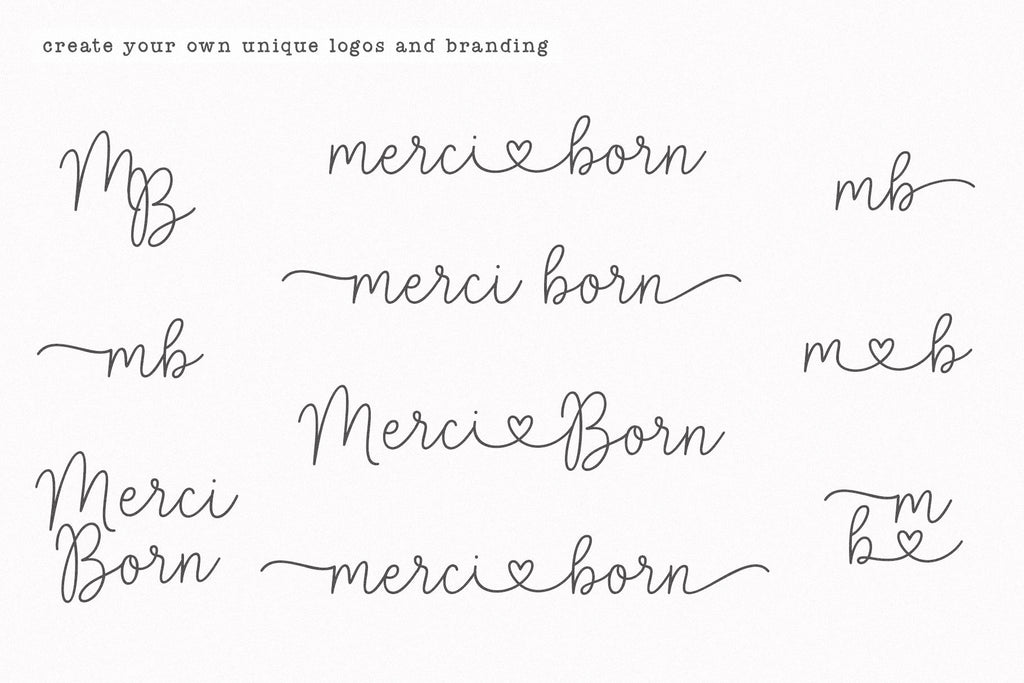 create your own unique logos and branding
MB
merci♡born
mb
merci born
mb
m♡b
Merci♡Born
Merci
Born
merci♡born
m
b♡